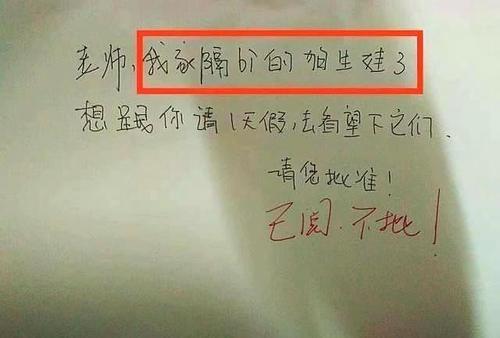 老师，我家隔bi的狗生娃3
想跟你请1天假，去看望下它们.
请您批准！
已阅.不批！